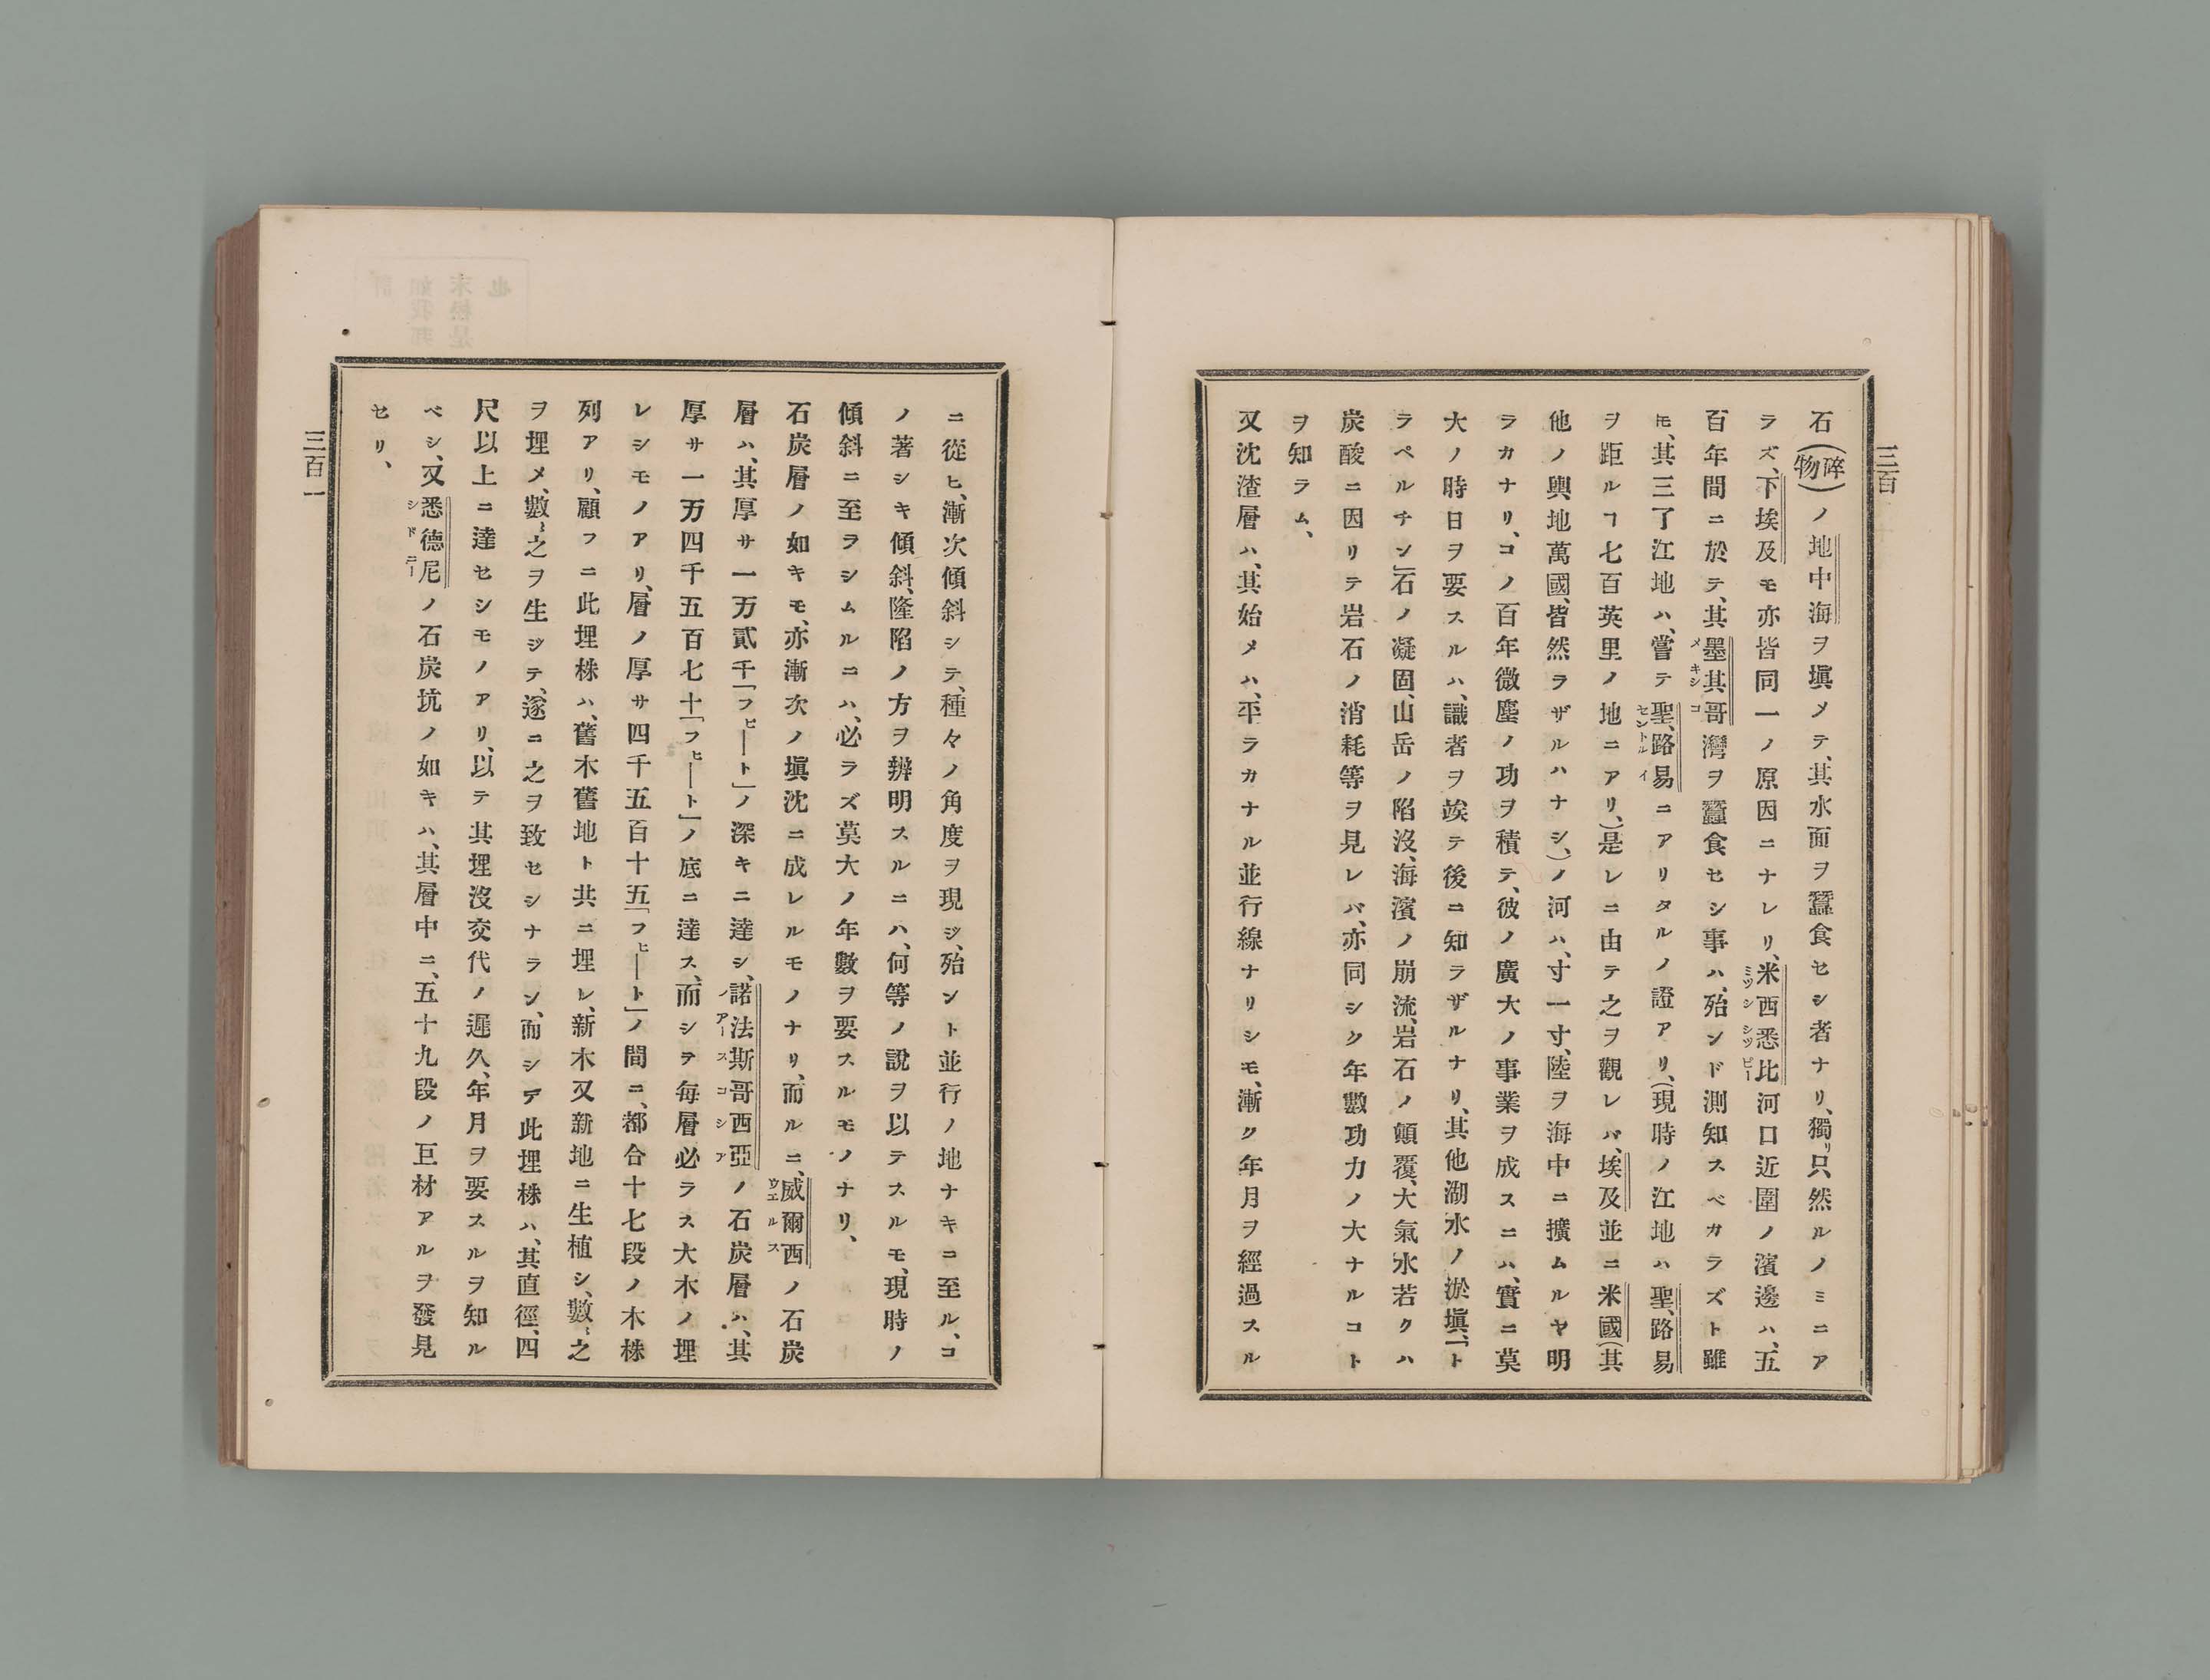 三百
石(碎物)ノ地中海ヲ塡メテ、其水面ヲ蠶食セシ者ナリ、獨リ只然ルノミニア
ラズ、下埃及モ亦皆同一ノ原因ニナレリ、米西悉比河口近圍ノ濱邊ハ、五
百年間ニ於テ、其墨其哥灣ヲ蠶食セシ事ハ、殆ンド測知スベカラズト雖
ㇳモ、其三了江地ハ、嘗テ聖路易ニアリタルノ證アリ、(現時ノ江地ハ聖路易
ヲ距ルヿ七百英里ノ地ニアリ、)是レニ由テ之ヲ觀レバ、埃及並ニ米國(其
他ノ輿地萬國、皆然ラザルハナシ、)ノ河ハ、寸一寸、陸ヲ海中ニ擴ムルヤ明
ラカナリ、コノ百年微塵ノ功ヲ積テ、彼ノ廣大ノ事業ヲ成スニハ、實ニ莫
大ノ時日ヲ要スルハ、識者ヲ竢テ後ニ知ラザルナリ、其他湖水ノ淤塡、「ト
ラペルチン」石ノ凝固、山岳ノ陷沒、海濱ノ崩流、岩石ノ顚覆、大氣水若クハ
炭酸ニ因リテ岩石ノ消耗等ヲ見レバ、亦同シク年數功力ノ大ナルコト
ヲ知ラム、
又沈渣層ハ、其始メハ、平ラカナル並行線ナリシモ、漸ク年月ヲ經過スル
ニ從ヒ、漸次傾斜シテ、種々ノ角度ヲ現ジ、殆ント並行ノ地ナキニ至ル、コ
ノ著シキ傾斜、隆陷ノ方ヲ辨明スルニハ、何等ノ說ヲ以テスルモ、現時ノ
傾斜ニ至ラシムルニハ、必ラズ莫大ノ年數ヲ要スルモノナリ、
石炭層ノ如キモ、亦漸次ノ塡沈ニ成レルモノナリ、而ルニ、威爾西ノ石炭
層ハ、其厚サ一万貳千「フヒート」ノ深キニ達シ、諾法斯哥西亞ノ石炭層ハ、其
厚サ一万四千五百七十「フヒート」ノ底ニ達ス、而シヲ每層必ラス大木ノ埋
レシモノアリ、層ノ厚サ四千五百十五「フヒート」ノ間ニ、都合十七段ノ木株
列アリ、顧フニ此埋株ハ、舊木舊地ト共ニ埋レ、新木又新地ニ生植シ、數〻之
ヲ埋メ、數〻之ヲ生ジテ、遂ニ之ヲ致セシナラン、而シデ此埋株ハ、其直徑、四
尺以上ニ達セシモノアリ、以テ其埋沒交代ノ遲久、年月ヲ要スルヲ知ル
ベシ、又悉德尼ノ石炭坑ノ如キハ、其層中ニ、五十九段ノ巨材アルヲ發見
セリ、
三百一